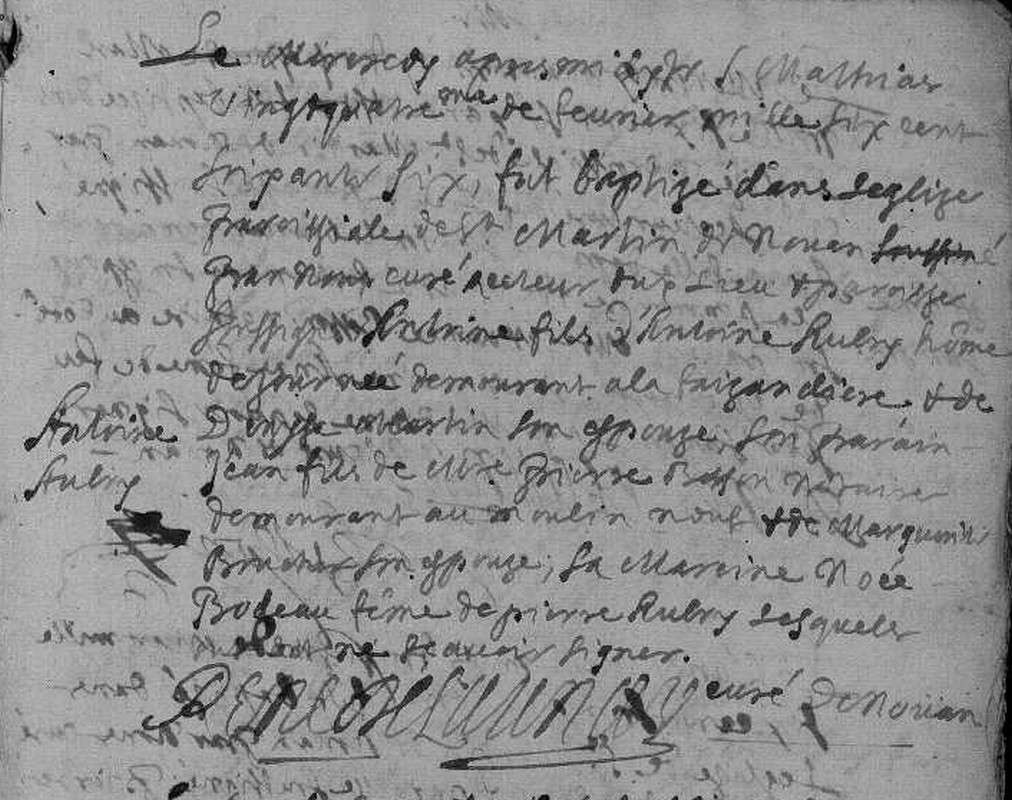 Le Mercredy apres midy St Mathias
Vingtquatre me de feurier mille six cent
soixante six, fut baptize dans leglize
parroissiale de St Martin de Nouan
par Nous curé recteur dud Lieu & paroisse
Antoine fils d'Antoine Aubry hôme
de journée demourant a la faizandiere & de
Antoine
Denyse Martin son espouze, son parain
Aubry
Jean fils de Mre Pierre notaire
demourant au moulin neuf & de Marguerite
Boucher son espouze, sa Maraine Noée
Bodeau fême de pierre Aubry Lesquels
ont ne scauoir signer.
curé de Nouan